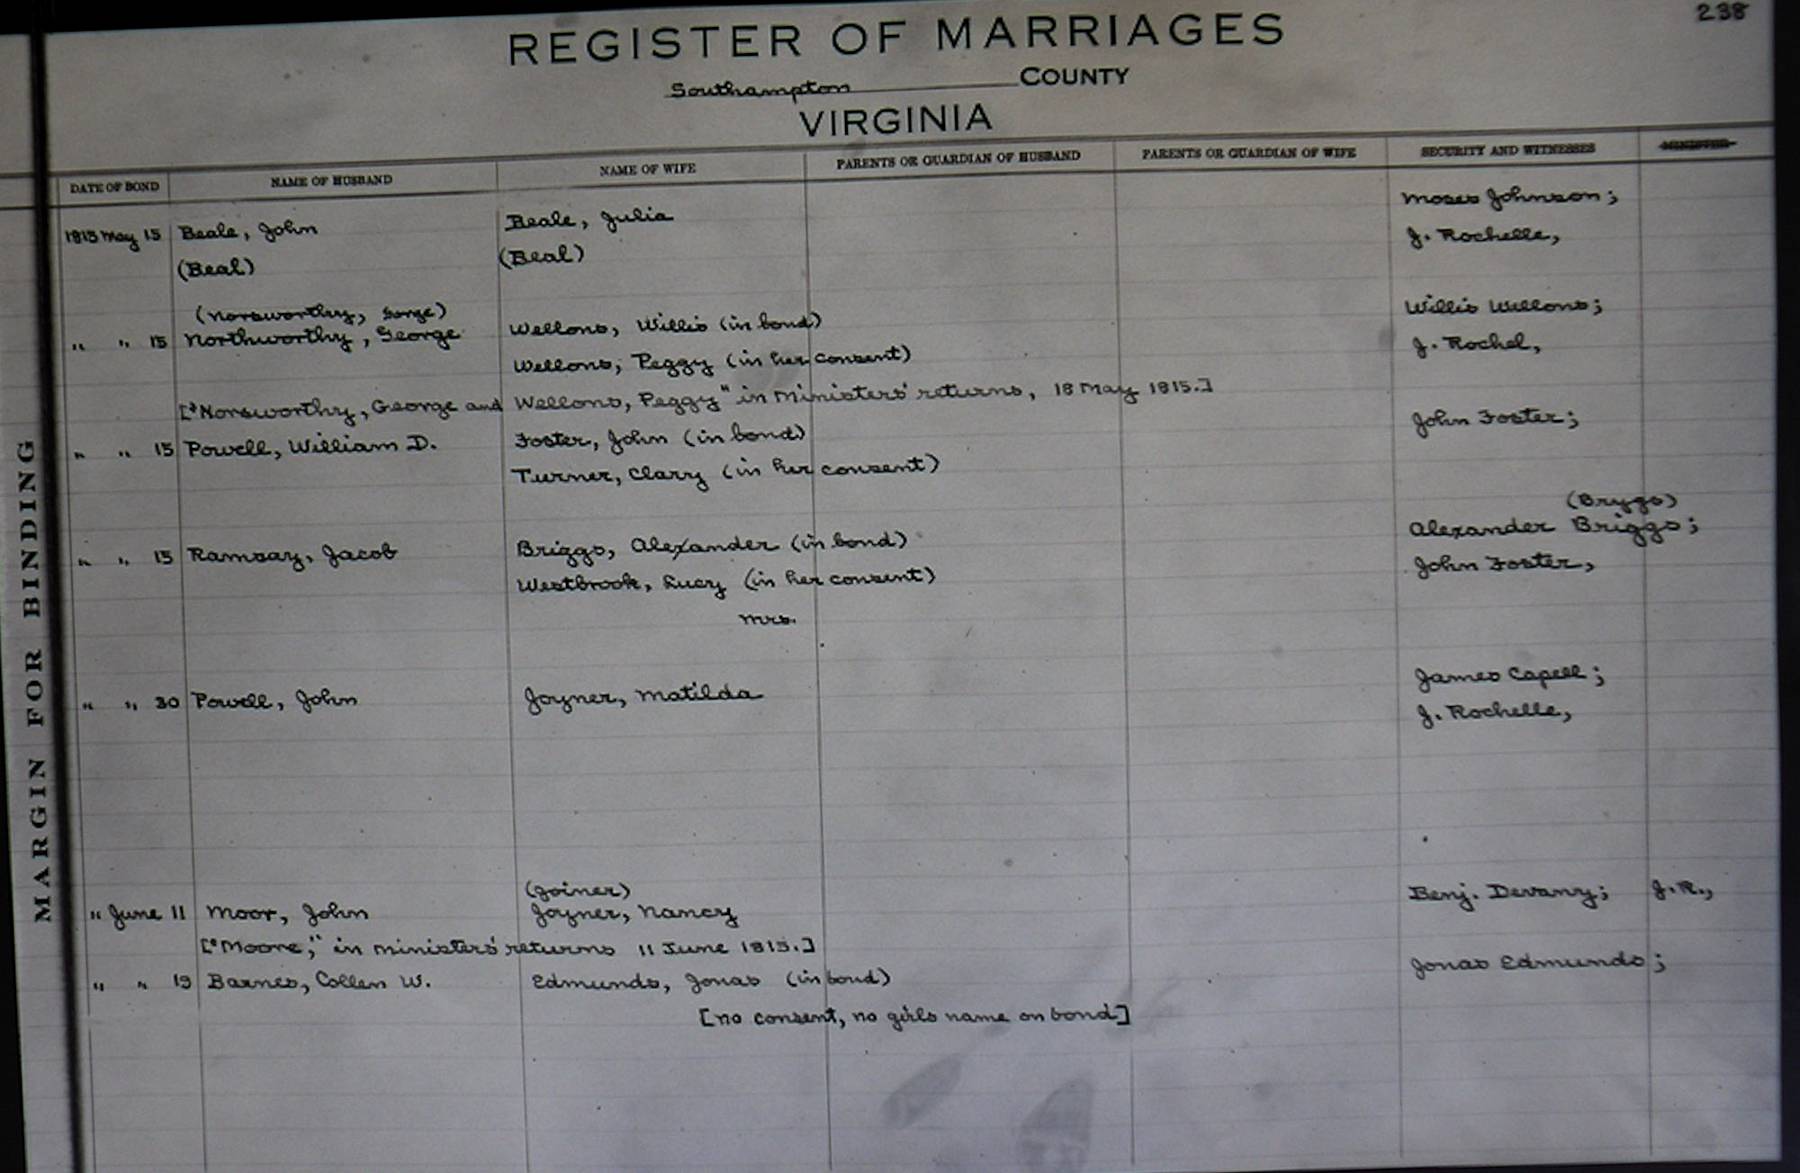 238
REGISTER OF MARRIAGES
Southampton COUNTY
VIRGINIA
DATE OF BOND NAME OF HUSBAND NAME OF WIFE PARENTS OR GUARDIAN OF HUSBAND PARENTS OR GUARDIAN OF WIFE SECURITY AND WITNESSES MINISTER
Moses Johnson;
1815 May 15 Beale, John Beale, Julia
J. Rochelle,
(Beal) (Beal)
(Norsworthy, Gorge) Willis Wellons;
" " 15 Northworthy, George Wellons, Willis (in bond)
J. Rochel,
Wellons, Peggy (in her consent)
["Norsworthy, George and Wellons, Peggy" in Ministers' returns, 18 May 1815.]
John Foster;
" " 15 Powell, William D. Foster, John (in bond)
Turner, Clary (in her consent)
(Brygs)
Alexander Briggs;
" " 15 Ramsay, Jacob Briggs, Alexander (in bond)
John Foster,
Westbrook, Lucy (in her consent)
Mrs.
James Capell;
" " 30 Powell, John Joyner, Matilda
J. Rochelle,
(Joiner)
Benj. Devany; J.R.,
" June 11 Moor, John Joyner, Nancy
["Moore," in ministers' returns 11 June 1815.]
Jonas Edmunds;
" " 19 Barnes, Collen W. Edmunds, Jonas (in bond)
[no consent, no girls name on bond]
MARGIN FOR BINDING